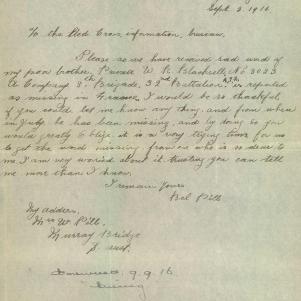 Sept. 3. 1916
To the Red Cross information bureau.
Please as we have received sad word of
my poor brother, Private W. R. Blackwell, No 3023
A Company 8th Brigade, 32nd Battalion, A.I.F. is reported
as missing in France. I would be so thankful,
if you could let me know any thing, and from when
in July he has been missing, and by doing so you
would greatly oblige. it is a very trying time for us
to get the word missing from one who is so dear to
me. I am very worried about it. trusting you can tell
me more than I know.
I remain yours
Bel Pitt
My address,
Mrs W. Pitt,
Murray Bridge
S. Aust.
9.9.16